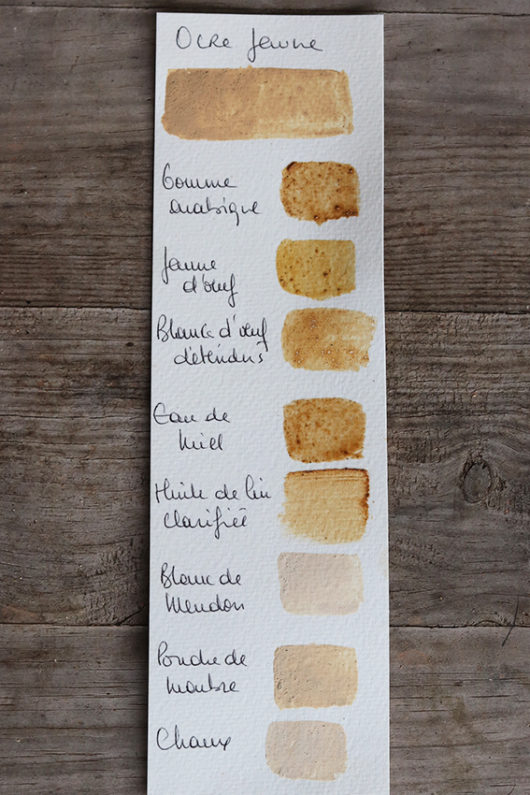 Ocre Jaune
Gomme
arabique
Jaune
d'œuf
Blancs d'œuf
détendus
Eau de
Miel
Huile de lin
clarifiée
Blanc de
Meudon
Poudre de
marbre
Chaux